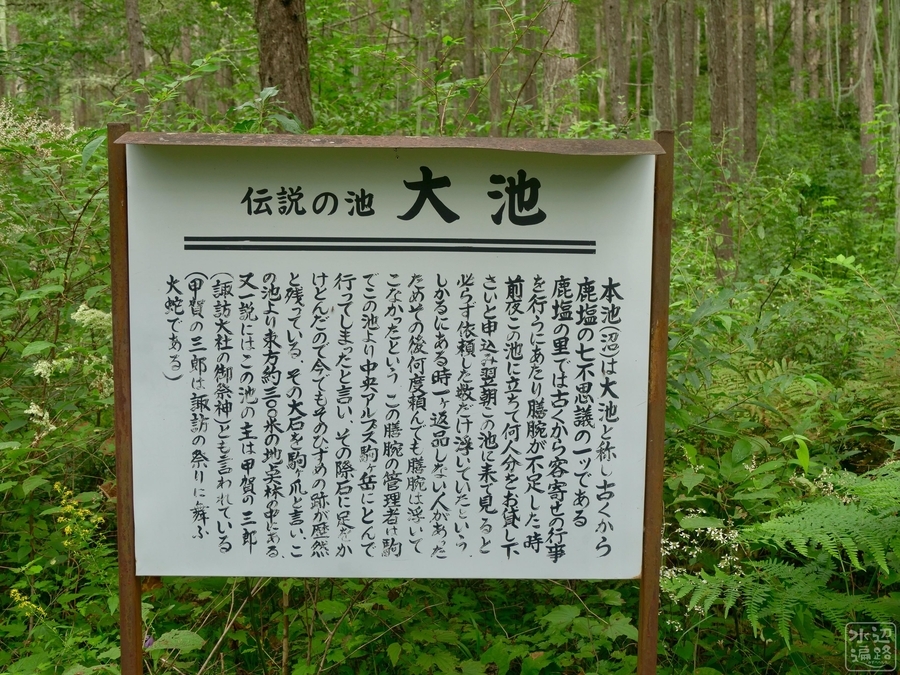 伝説の池 大池
本池(沼)は大池と称し古くから
鹿塩の七不思議の一ッである
鹿塩の里では古くから客寄せの行事
を行うにあたり膳腕が不足した時
前夜この池に立ちて何人分をお貸し下
さいと申込み翌朝この池に来て見ると
必らず依頼した数だけ浮いていたという、
しかるにある時一ヶ返品しない人があった
ためその後何度頼んでも膳腕は浮いて
こなかったという この膳腕の管理者は駒
でこの池より中央アルプス駒ヶ岳にとんで
行ってしまったと言い、その際石に足をか
けとんだので今でもそのひずめの跡が歴然
と残っている、その大石を駒ヶ爪と言い、こ
の池より東方約三〇〇米の地点林の中にある、
又一説にはこの池の主は甲賀の三郎
(諏訪大社の御祭神)とも言われている
(甲賀の三郎は諏訪の祭りに舞ふ
大蛇である)
水辺遍路